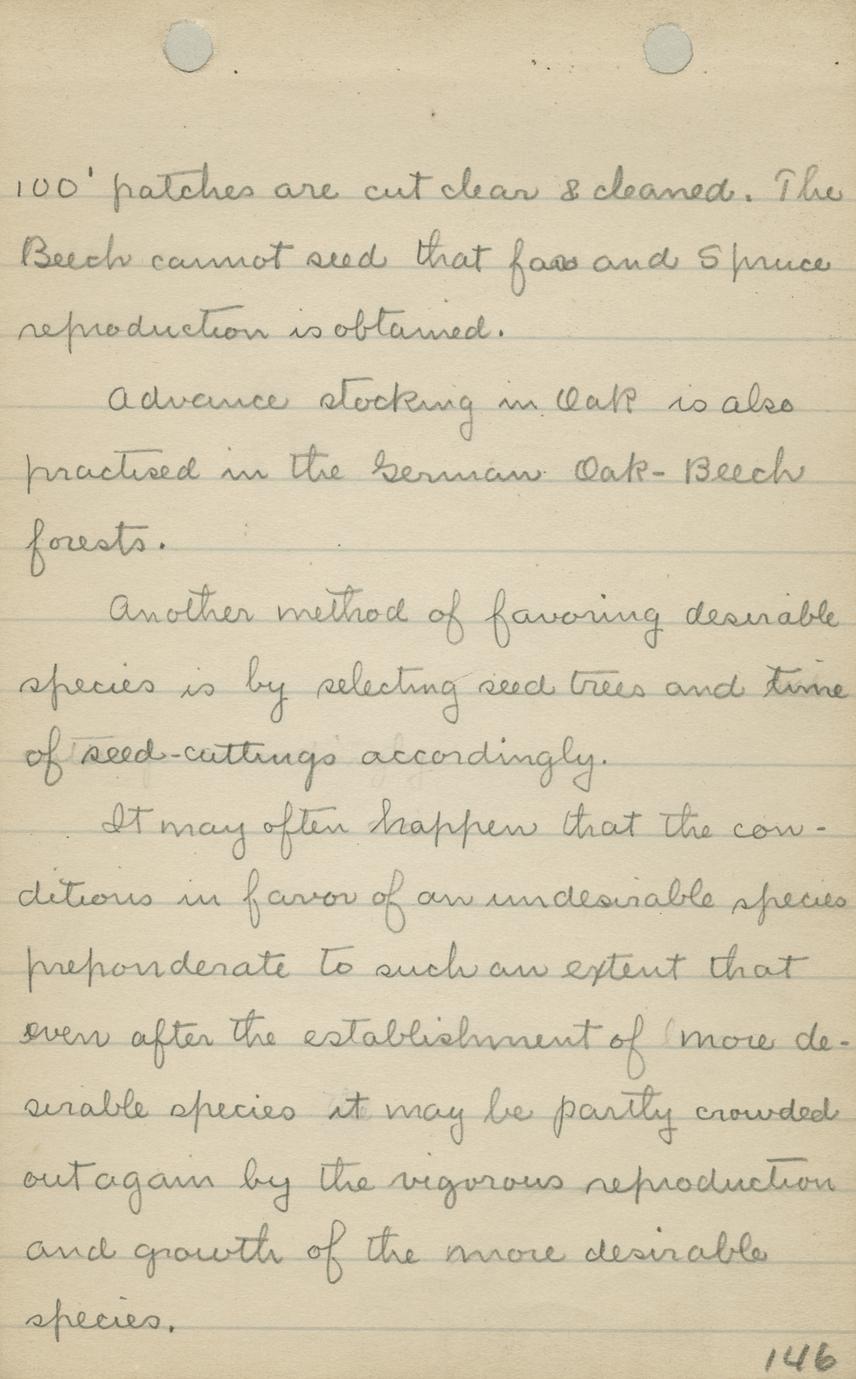 100' patches are cut clear & cleaned. The
Beech cannot seed that far and Spruce
reproduction is obtained.
Advance stocking in Oak is also
practised in the German Oak-Beech
forests.
Another method of favoring desirable
species is by selecting seed trees and time
of seed-cuttings accordingly.
It may often happen that the con-
ditions in favor of an undesirable species
preponderate to such an extent that
even after the establishment of more de-
sirable species it may be partly crowded
out again by the vigorous reproduction
and growth of the more desirable
species.
146